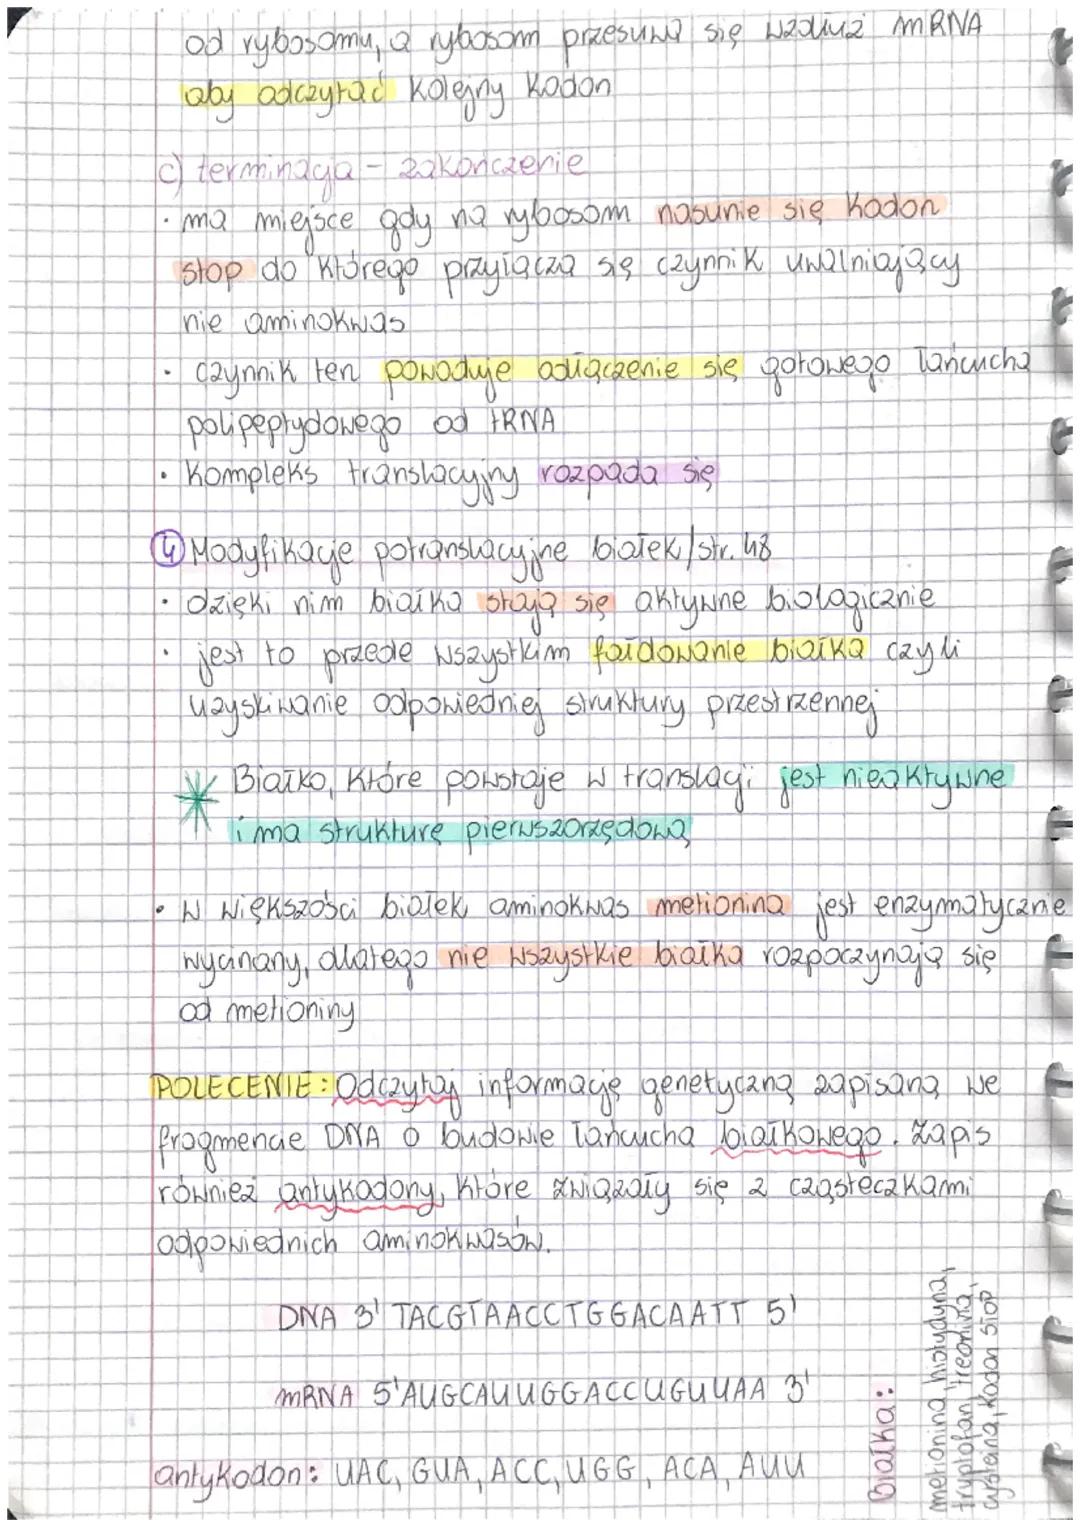 od rybosomu, a rybosom przesuwa się wzdłuż mRNA
aby odczytać kolejny kodon
c) terminacja - zakończenie
• ma miejsce gdy na rybosom nasunie się kodon
stop do którego przyłącza się czynnik uwalniający
nie aminokwas
• czynnik ten powoduje odłączenie się gotowego łańcucha
polipeptydowego od tRNA
• kompleks translacyjny rozpada się
④ Modyfikacje potranslacyjne białek/str. 48
• dzięki nim białka stają się aktywne biologicznie
• jest to przede wszystkim fałdowanie białka czyli
uzyskiwanie odpowiedniej struktury przestrzennej
* Białko, które powstaje w translacji jest nieaktywne
i ma strukturę pierwszorzędową
• W większości białek aminokwas metionina jest enzymatycznie
wycinany, dlatego nie wszystkie białka rozpoczynają się
od metioniny
POLECENIE: Odczytaj informację genetyczną zapisaną we
fragmencie DNA o budowie łańcucha białkowego. Zapis
również antykodony, które związały się z cząsteczkami
odpowiednich aminokwasów.
DNA 3' TACGTAACCTGGACAATT 5'
mRNA 5' AUGCAUUGGACCUGUUAA 3'
antykodon: UAC, GUA, ACC, UGG, ACA, AUU
Białka:
metionina, histydyna,
tryptofan, treonina,
cysteina, kodon stop